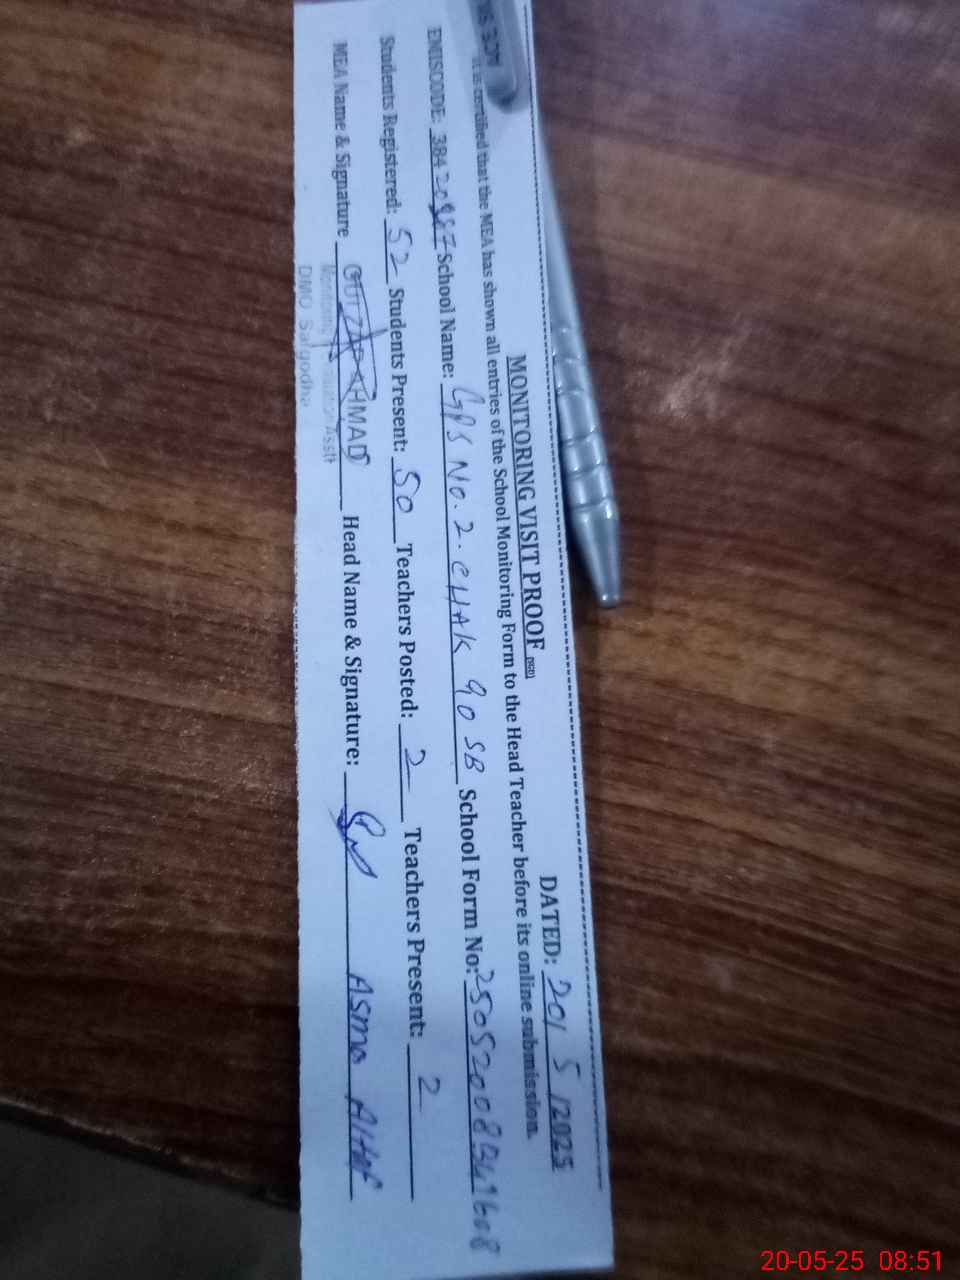 MONITORING VISIT PROOF
DATED: 20/ 5 /2025
It is certified that the MEA has shown all entries of the School Monitoring Form to the Head Teacher before its online submission.
EMISCODE: School Name: GPS No. 2. CHAK 90 SB School Form No:
Students Registered: 52 Students Present: 50 Teachers Posted: 2 Teachers Present: 2
MEA Name & Signature GULZAR AHMAD Head Name & Signature: Asma Altaf
Monitoring
DMO Sargodha
20-05-25 08:51